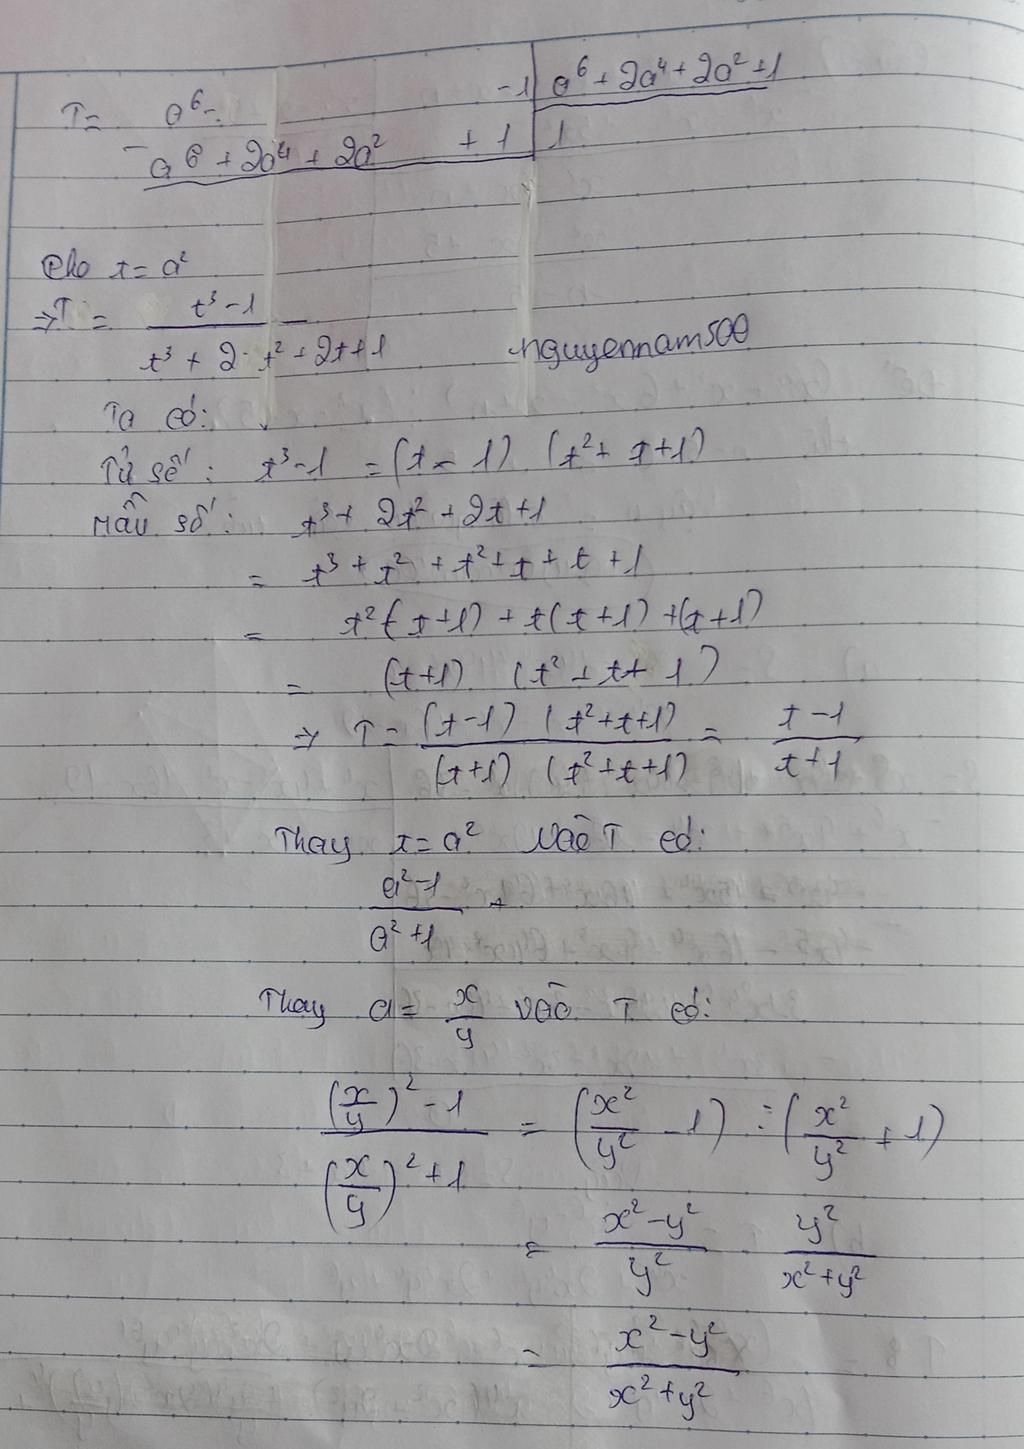 T = a⁶ - -1 | a⁶ + 2a⁴ + 2a² + 1
- a⁶ + 2a⁴ + 2a² + 1 | 1
Cho t = a²
⇒ T = (t³ - 1) / (t³ + 2·t² + 2t + 1)
nguyennam500
Ta có:
Tử số: t³ - 1 = (t - 1) (t² + t + 1)
Mẫu số: t³ + 2t² + 2t + 1
= t³ + t² + t² + t + t + 1
= t² (t + 1) + t (t + 1) + (t + 1)
= (t + 1) (t² + t + 1)
⇒ T = (t - 1) (t² + t + 1) / (t + 1) (t² + t + 1) = (t - 1) / (t + 1)
Thay t = a² vào T có:
(a² - 1) / (a² + 1)
Thay a = x/y vào T có:
((x/y)² - 1) / ((x/y)² + 1) = (x²/y² - 1) : (x²/y² + 1)
= (x² - y²)/y² · y²/(x² + y²)
= (x² - y²) / (x² + y²)